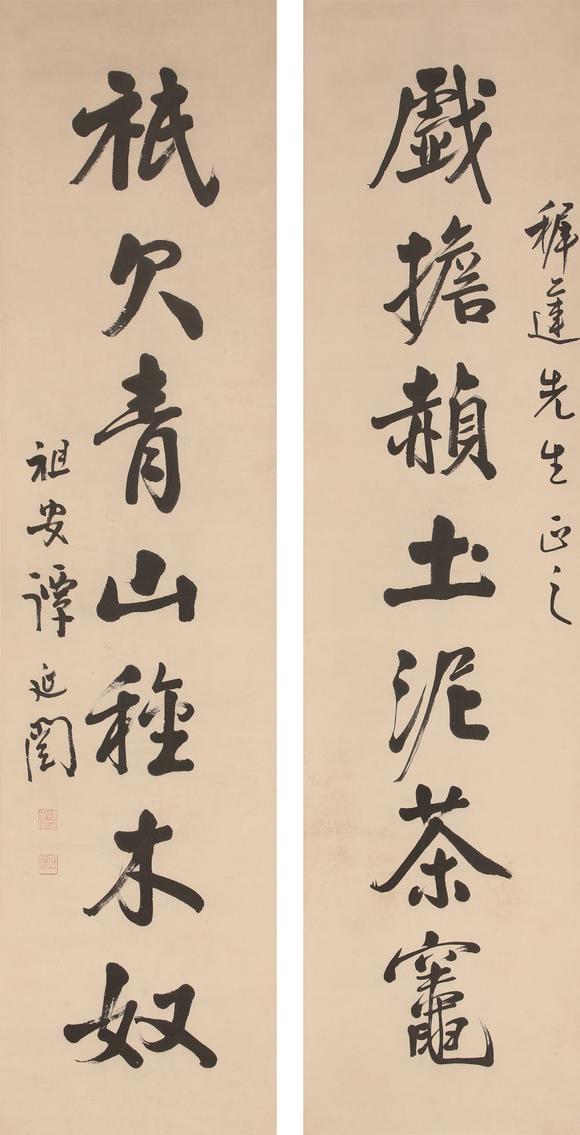 稺蓮先生正之
戲擔赬土泥茶竈
祗欠青山種木奴
祖安譚延闓